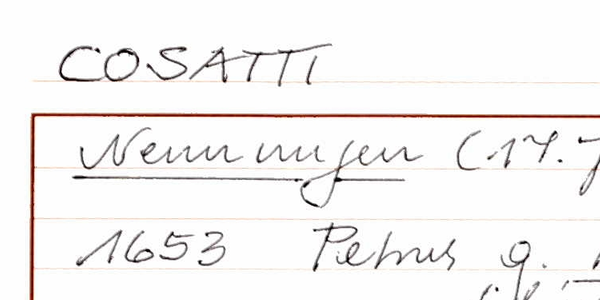 COSATTI
Nennungen (17. J
1653 Petrus q.